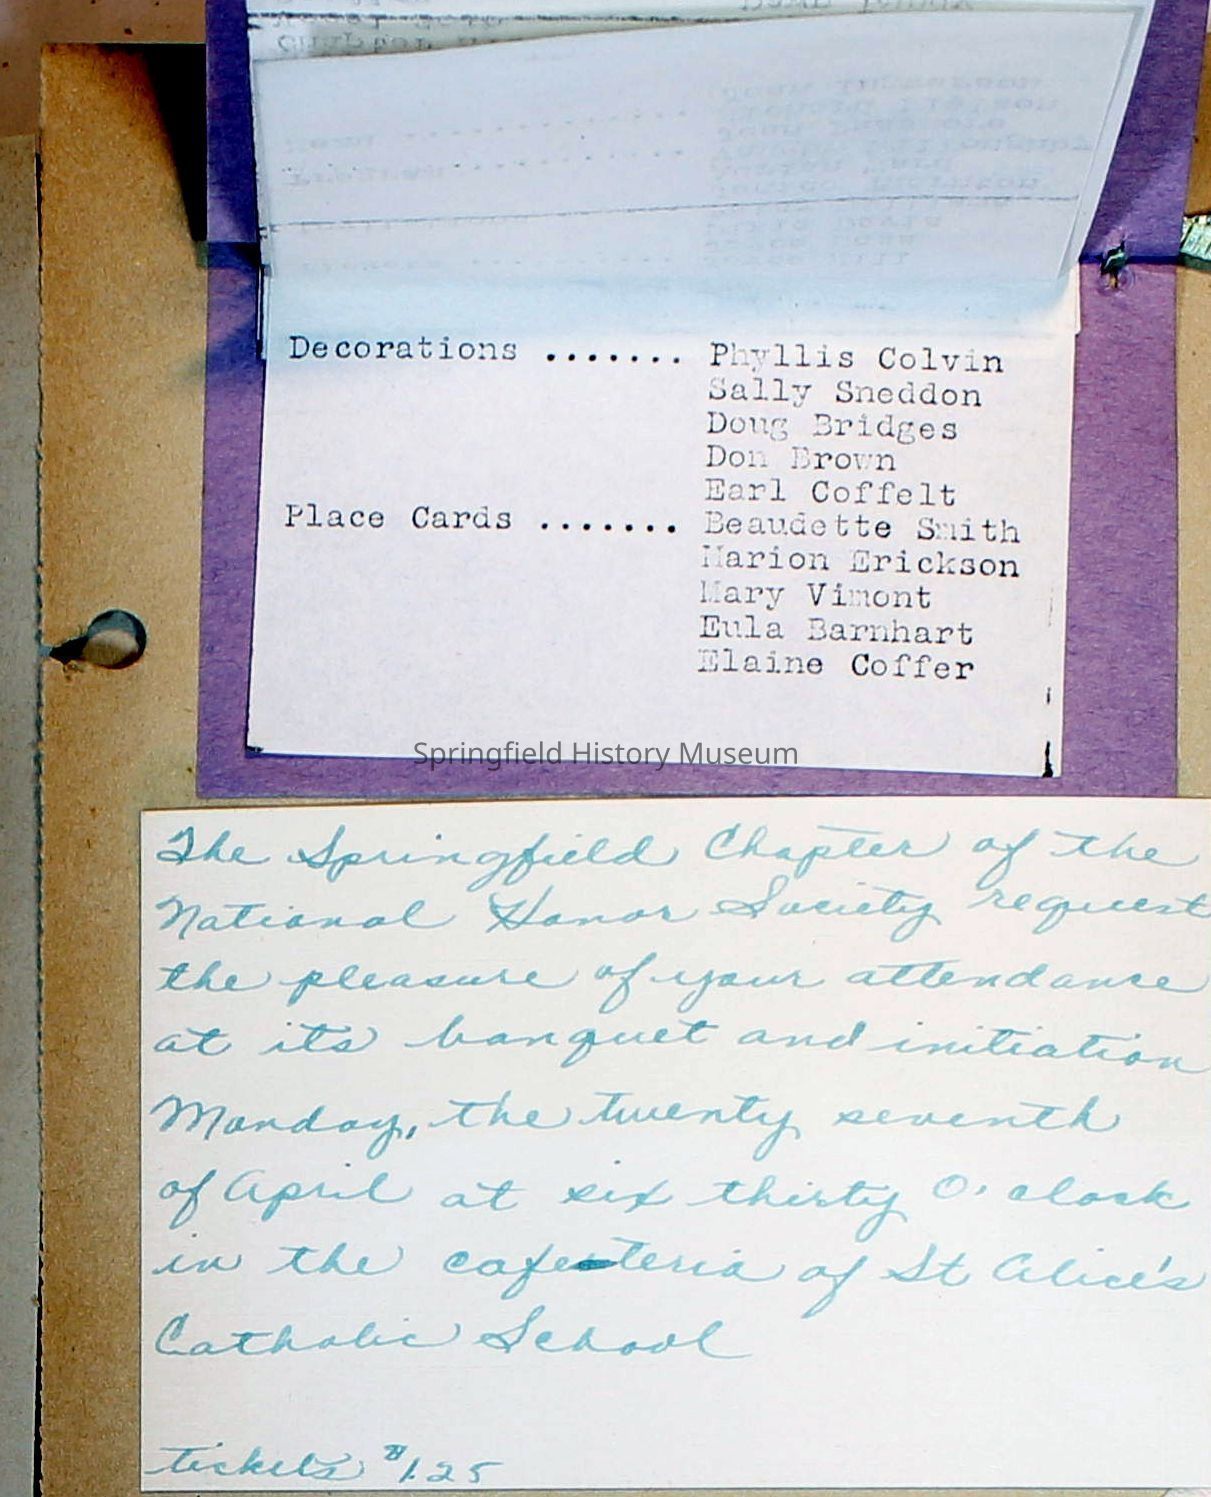 Decorations ....... Phyllis Colvin
Sally Sneddon
Doug Bridges
Don Brown
Earl Coffelt
Place Cards ....... Beaudette Smith
Marion Erickson
Mary Vimont
Eula Barnhart
Elaine Coffer
Springfield History Museum
The Springfield Chapter of the
National Honor Society request
the pleasure of your attendance
at its banquet and initiation
Monday, the twenty seventh
of April at six thirty O'clock
in the cafeteria of St Alice's
Catholic School
tickets $1.25